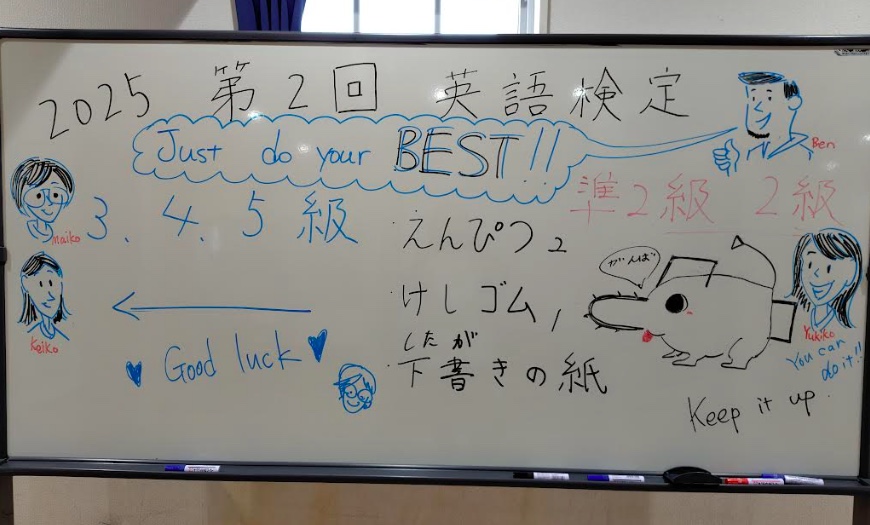 2025 第2回 英語検定
Just do your BEST!!
Ben
maiko
3. 4. 5級
準2級 2級
・えんぴつ2
がんば
・けしゴム1
Keiko
Yukiko
Good luck
したが
・下書きの紙
You can
do it!!
Keep it up.